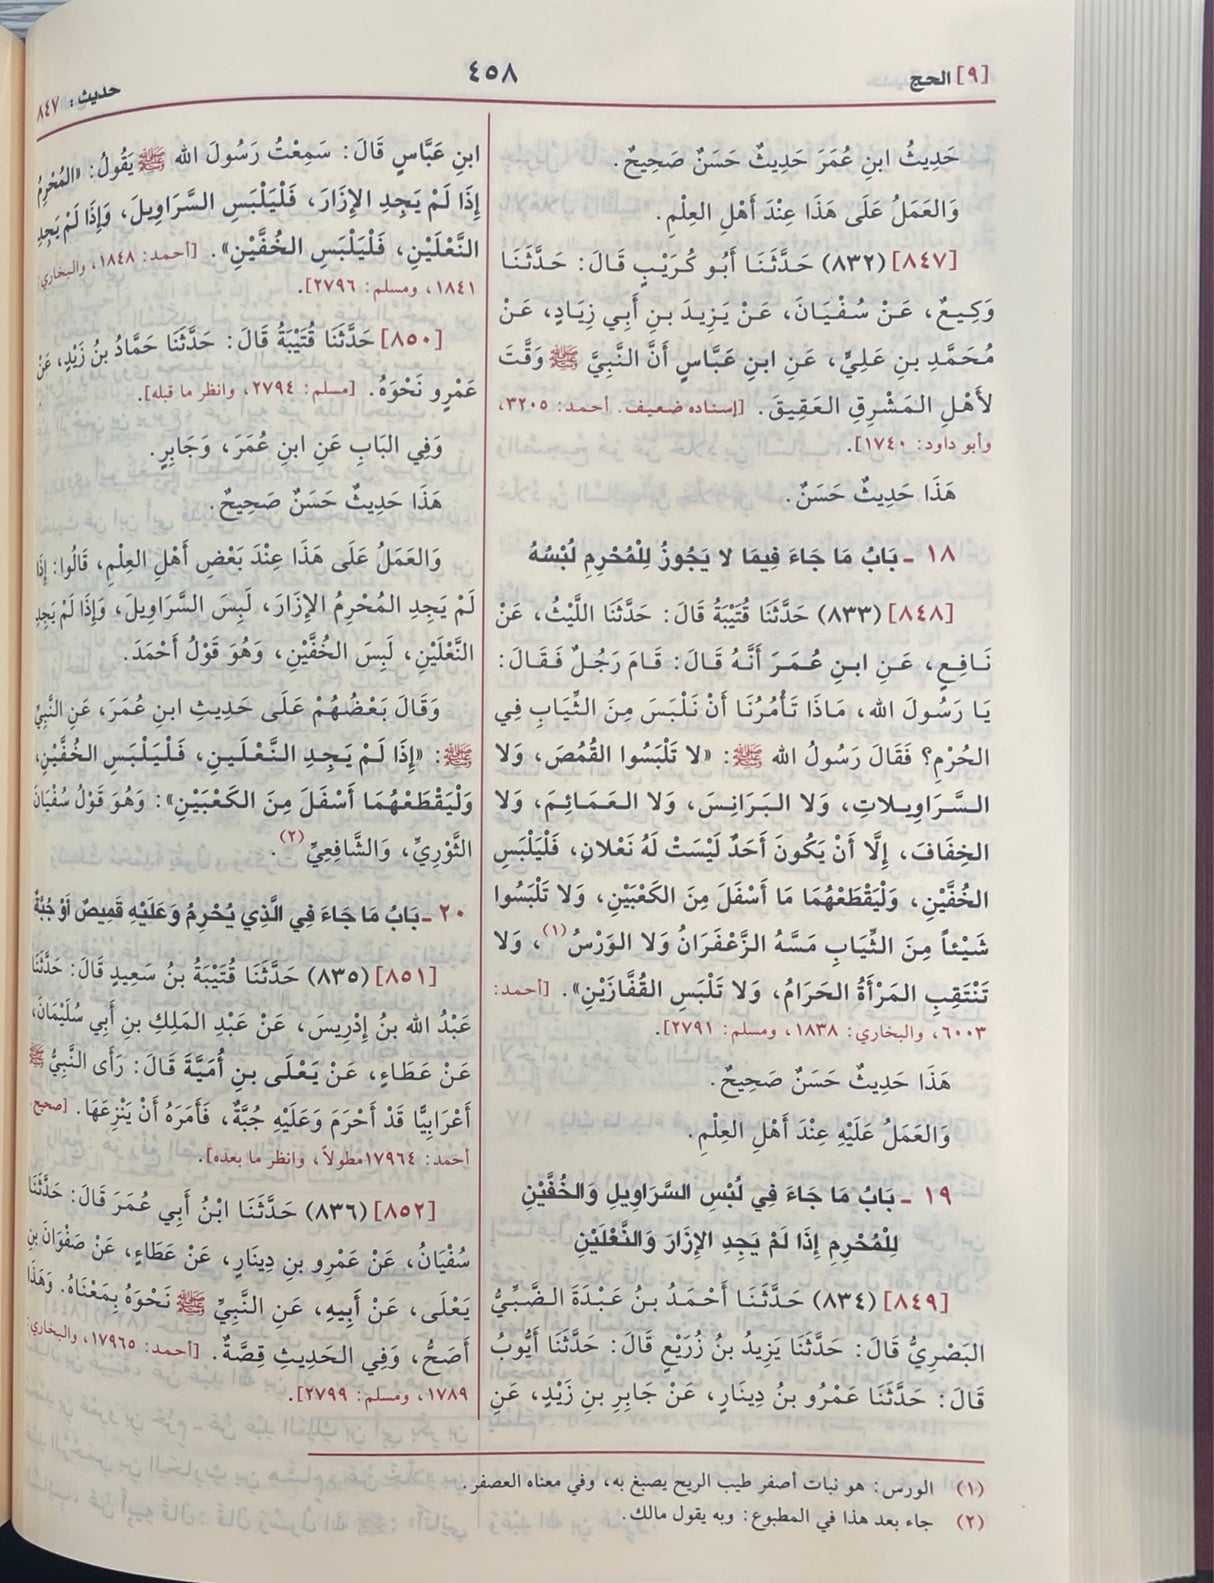 [٩] الحج
٤٥٨
حديث: ٨٤٧
حَدِيثُ ابنِ عُمَرَ حَدِيثٌ حَسَنٌ صَحِيحٌ.
وَالعَمَلُ عَلَى هَذَا عِنْدَ أَهْلِ العِلْمِ.
[٨٤٧] (٨٣٢) حَدَّثَنَا أَبُو كُرَيْبٍ قَالَ: حَدَّثَنَا
وَكِيعٌ، عَنْ سُفْيَانَ، عَنْ يَزِيدَ بنِ أَبِي زِيَادٍ، عَنْ
مُحَمَّدِ بنِ عَلِيٍّ، عَنِ ابنِ عَبَّاسٍ أَنَّ النَّبِيَّ ﷺ وَقَّتَ
لأَهْلِ المَشْرِقِ العَقِيقَ. [إسناده ضعيف. أحمد: ٣٢٠٥،
وأبو داود: ١٧٤٠].
هَذَا حَدِيثٌ حَسَنٌ.
١٨ - بَابُ مَا جَاءَ فِيمَا لا يَجُوزُ لِلْمُحْرِمِ لُبْسُهُ
[٨٤٨] (٨٣٣) حَدَّثَنَا قُتَيْبَةُ قَالَ: حَدَّثَنَا اللَّيْثُ، عَنْ
نَافِعٍ، عَنِ ابنِ عُمَرَ أَنَّهُ قَالَ: قَامَ رَجُلٌ فَقَالَ:
يَا رَسُولَ الله، مَاذَا تَأْمُرُنَا أَنْ نَلْبَسَ مِنَ الثِّيَابِ فِي
الحُرْمِ؟ فَقَالَ رَسُولُ الله ﷺ: «لا تَلْبَسُوا القُمُصَ، وَلا
السَّرَاوِيلاتِ، وَلا البَرَانِسَ، وَلا العَمَائِمَ، وَلا
الخِفَافَ، إِلَّا أَنْ يَكُونَ أَحَدٌ لَيْسَتْ لَهُ نَعْلانِ، فَلْيَلْبَسِ
الخُفَّيْنِ، وَلْيَقْطَعْهُمَا مَا أَسْفَلَ مِنَ الكَعْبَيْنِ، وَلا تَلْبَسُوا
شَيْئاً مِنَ الثِّيَابِ مَسَّهُ الزَّعْفَرَانُ وَلا الوَرْسُ(١)، وَلا
تَنْتَقِبِ المَرْأَةُ الحَرَامُ، وَلا تَلْبَسِ القُفَّازَيْنِ». [أحمد:
٦٠٠٣، والبخاري: ١٨٣٨، ومسلم: ٢٧٩١].
هَذَا حَدِيثٌ حَسَنٌ صَحِيحٌ.
وَالعَمَلُ عَلَيْهِ عِنْدَ أَهْلِ العِلْمِ.
١٩ - بَابُ مَا جَاءَ فِي لُبْسِ السَّرَاوِيلِ وَالخُفَّيْنِ
لِلْمُحْرِمِ إِذَا لَمْ يَجِدِ الإِزَارَ وَالنَّعْلَيْنِ
[٨٤٩] (٨٣٤) حَدَّثَنَا أَحْمَدُ بنُ عَبْدَةَ الضَّبِّيُّ
البَصْرِيُّ قَالَ: حَدَّثَنَا يَزِيدُ بنُ زُرَيْعٍ قَالَ: حَدَّثَنَا أَيُّوبُ
قَالَ: حَدَّثَنَا عَمْرُو بنُ دِينَارٍ، عَنْ جَابِرِ بنِ زَيْدٍ، عَنِ
ابنِ عَبَّاسٍ قَالَ: سَمِعْتُ رَسُولَ الله ﷺ يَقُولُ: «المُحْرِمُ
إِذَا لَمْ يَجِدِ الإِزَارَ، فَلْيَلْبَسِ السَّرَاوِيلَ، وَإِذَا لَمْ يَجِدِ
النَّعْلَيْنِ، فَلْيَلْبَسِ الخُفَّيْنِ». [أحمد: ١٨٤٨، والبخاري:
١٨٤١، ومسلم: ٢٧٩٦].
[٨٥٠] حَدَّثَنَا قُتَيْبَةُ قَالَ: حَدَّثَنَا حَمَّادُ بنُ زَيْدٍ، عَنْ
عَمْرٍو نَحْوَهُ. [مسلم: ٢٧٩٤، وانظر ما قبله].
وَفِي البَابِ عَنِ ابنِ عُمَرَ، وَجَابِرٍ.
هَذَا حَدِيثٌ حَسَنٌ صَحِيحٌ.
وَالعَمَلُ عَلَى هَذَا عِنْدَ بَعْضِ أَهْلِ العِلْمِ، قَالُوا: إِذَا
لَمْ يَجِدِ المُحْرِمُ الإِزَارَ، لَبِسَ السَّرَاوِيلَ، وَإِذَا لَمْ يَجِدِ
النَّعْلَيْنِ، لَبِسَ الخُفَّيْنِ، وَهُوَ قَوْلُ أَحْمَدَ.
وَقَالَ بَعْضُهُمْ عَلَى حَدِيثِ ابنِ عُمَرَ، عَنِ النَّبِيِّ
ﷺ: «إِذَا لَمْ يَجِدِ النَّعْلَينِ، فَلْيَلْبَسِ الخُفَّيْنِ،
وَلْيَقْطَعْهُمَا أَسْفَلَ مِنَ الكَعْبَيْنِ»: وَهُوَ قَوْلُ سُفْيَانَ
الثَّوْرِيِّ، وَالشَّافِعِيِّ(٢).
٢٠ - بَابُ مَا جَاءَ فِي الَّذِي يُحْرِمُ وَعَلَيْهِ قَمِيصٌ أَوْ جُبَّةٌ
[٨٥١] (٨٣٥) حَدَّثَنَا قُتَيْبَةُ بنُ سَعِيدٍ قَالَ: حَدَّثَنَا
عَبْدُ الله بنُ إِدْرِيسَ، عَنْ عَبْدِ المَلِكِ بنِ أَبِي سُلَيْمَانَ،
عَنْ عَطَاءٍ، عَنْ يَعْلَى بنِ أُمَيَّةَ قَالَ: رَأَى النَّبِيُّ ﷺ
أَعْرَابِيًّا قَدْ أَحْرَمَ وَعَلَيْهِ جُبَّةٌ، فَأَمَرَهُ أَنْ يَنْزِعَهَا. [صحيح.
أحمد: ١٧٩٦٤ مطولاً، وانظر ما بعده].
[٨٥٢] (٨٣٦) حَدَّثَنَا ابْنُ أَبِي عُمَرَ قَالَ: حَدَّثَنَا
سُفْيَانُ، عَنْ عَمْرِو بنِ دِينَارٍ، عَنْ عَطَاءٍ، عَنْ صَفْوَانَ بنِ
يَعْلَى، عَنْ أَبِيهِ، عَنِ النَّبِيِّ ﷺ نَحْوَهُ بِمَعْنَاهُ. وَهَذَا
أَصَحُّ، وَفِي الحَدِيثِ قِصَّةٌ. [أحمد: ١٧٩٦٥، والبخاري:
١٧٨٩، ومسلم: ٢٧٩٩].
(١) الورس: هو نبات أصفر طيب الريح يصبغ به، وفي معناه العصفر.
(٢) جاء بعد هذا في المطبوع: وبه يقول مالك.